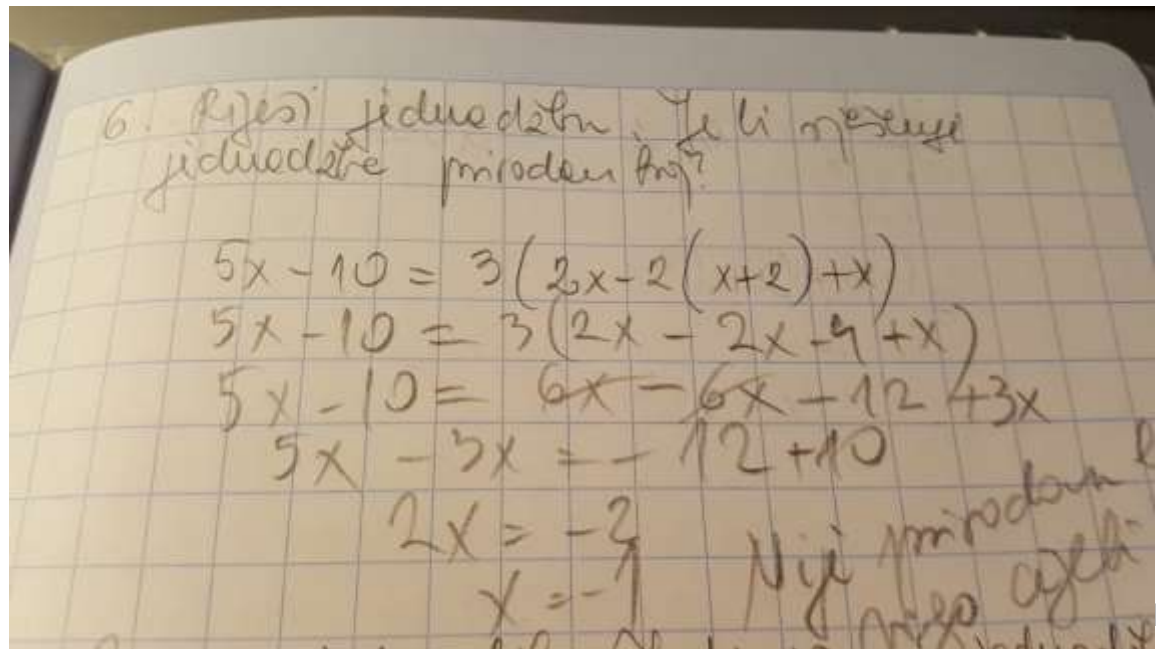 6. Riješi jednadžbu. Je li rješenje
jednadžbe prirodan broj?
5x - 10 = 3(2x - 2(x+2) + x)
5x - 10 = 3(2x - 2x - 4 + x)
5x - 10 = 6x - 6x - 12 + 3x
5x - 3x = - 12 + 10
2x = -2
x = -1
Nije prirodan
nego cijeli